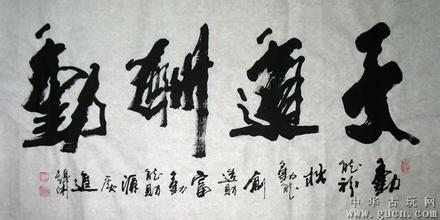 天道酬勤
勤能補拙勤能創造財富勤能財源廣進
中華古玩网
www.gucn.com